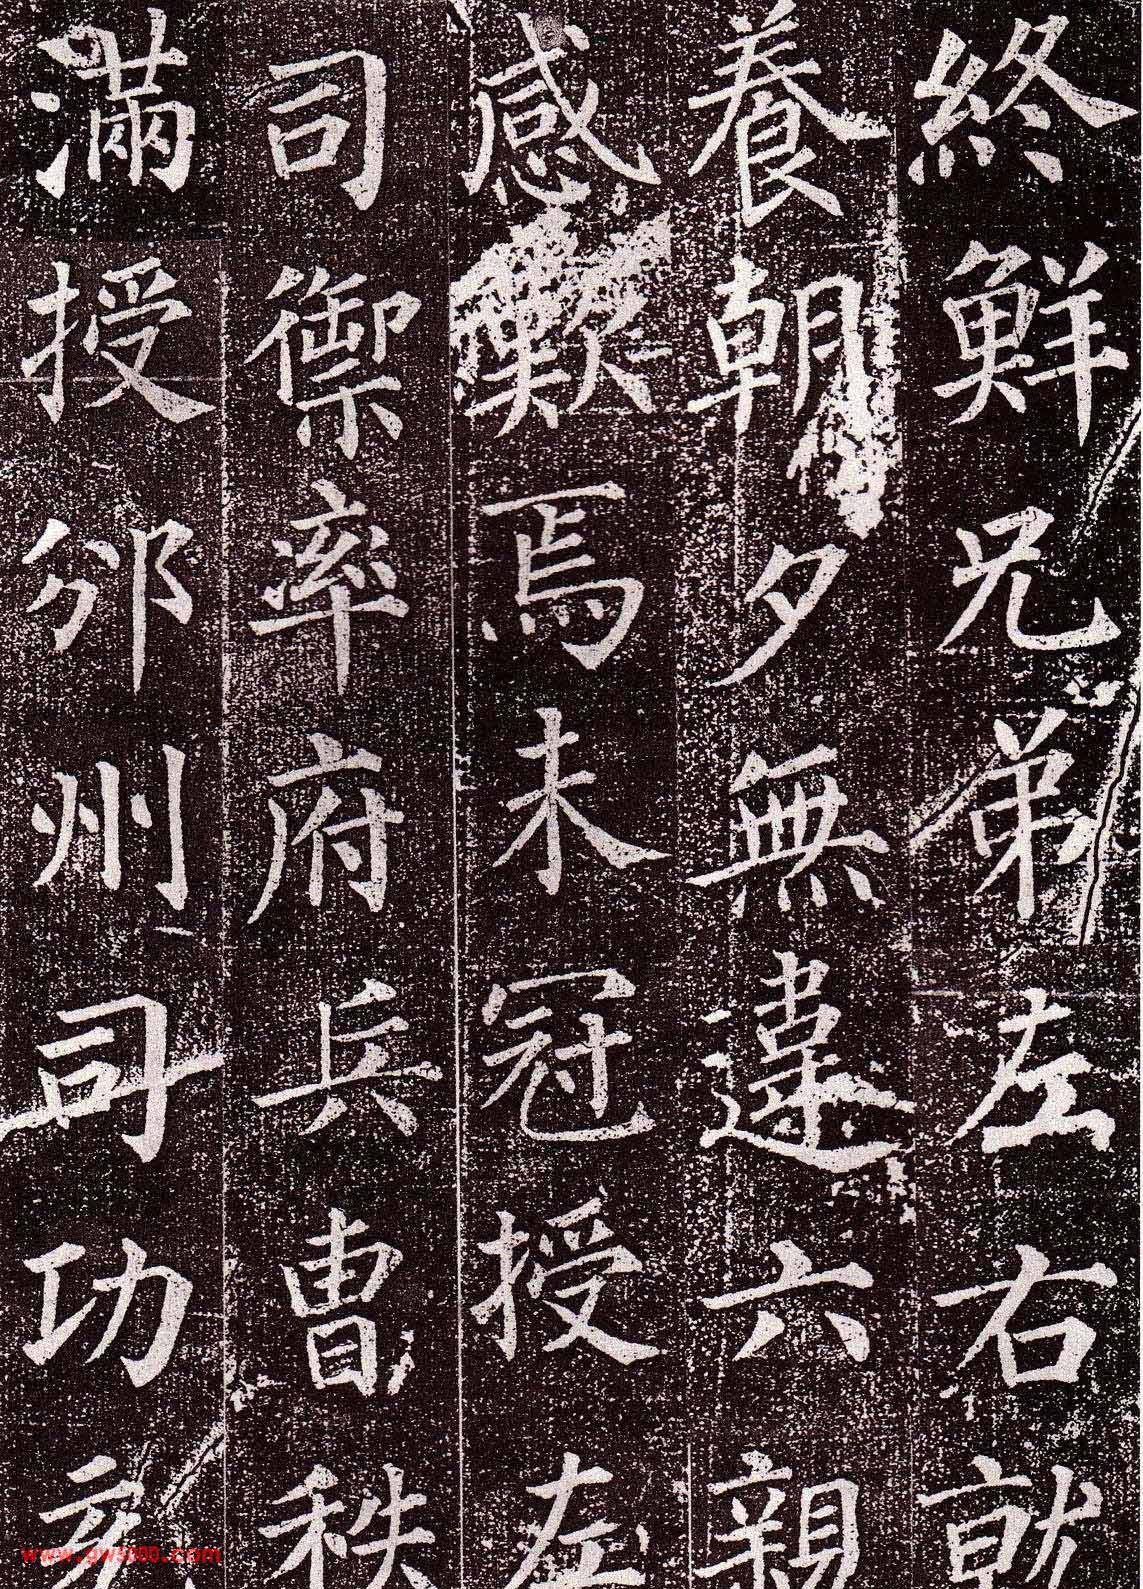 終鮮兄弟左右就
養朝夕無違六親
感歎焉未冠授左
司禦率府兵曹秩
滿授邠州司功
www.gw5000.com